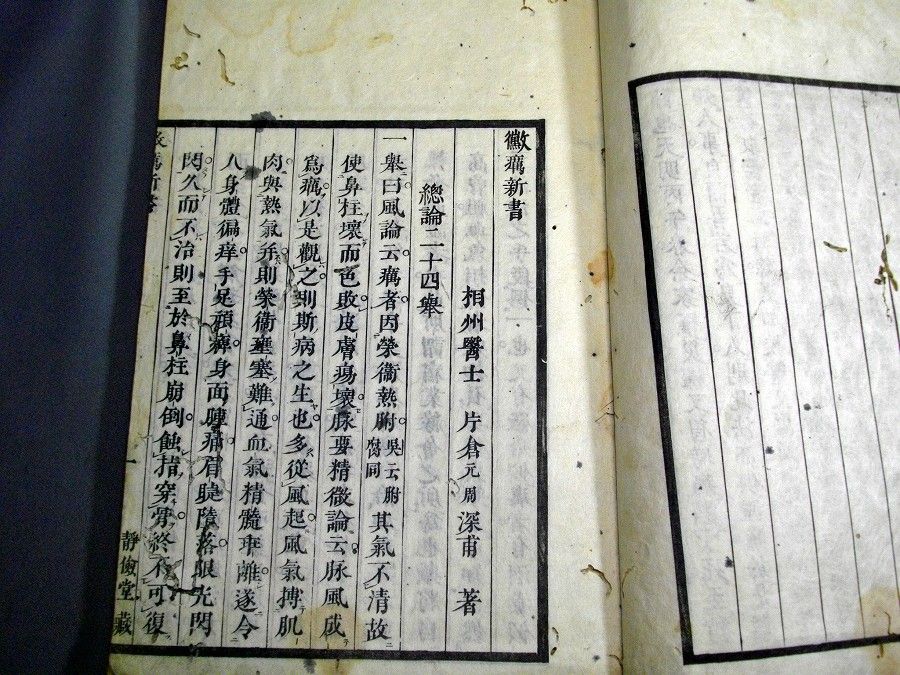 黴癘新書
相州醫士 片倉元周深甫 著
總論二十四舉
一舉曰風論云癘者因榮衞熱胕吳云胕腐同其氣不清故
使鼻柱壞而色敗皮膚瘍壞脉要精微論云脉風成
爲癘以是觀之則斯病之生也多從風起風氣搏肌
肉與熱氣并則榮衞壅塞難通血氣精髓乖離遂令
人身體徧痒手足頑痺身面腫痛眉睫墮落眼光閃
閃久而不治則至於鼻柱崩倒蝕指穿骨終不可復
癘新書
一
靜儉堂藏